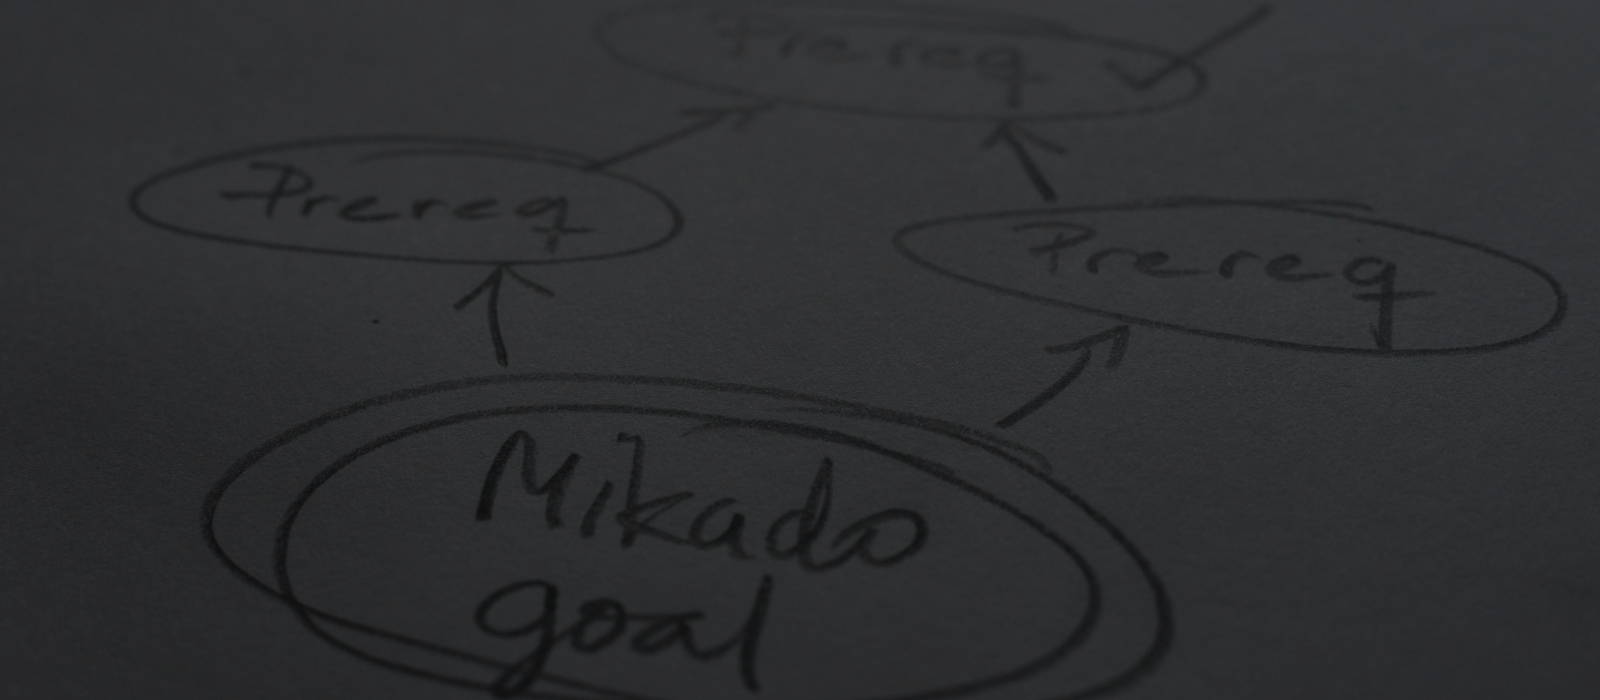 Prereq
Prereq
Prereq
Mikado
goal